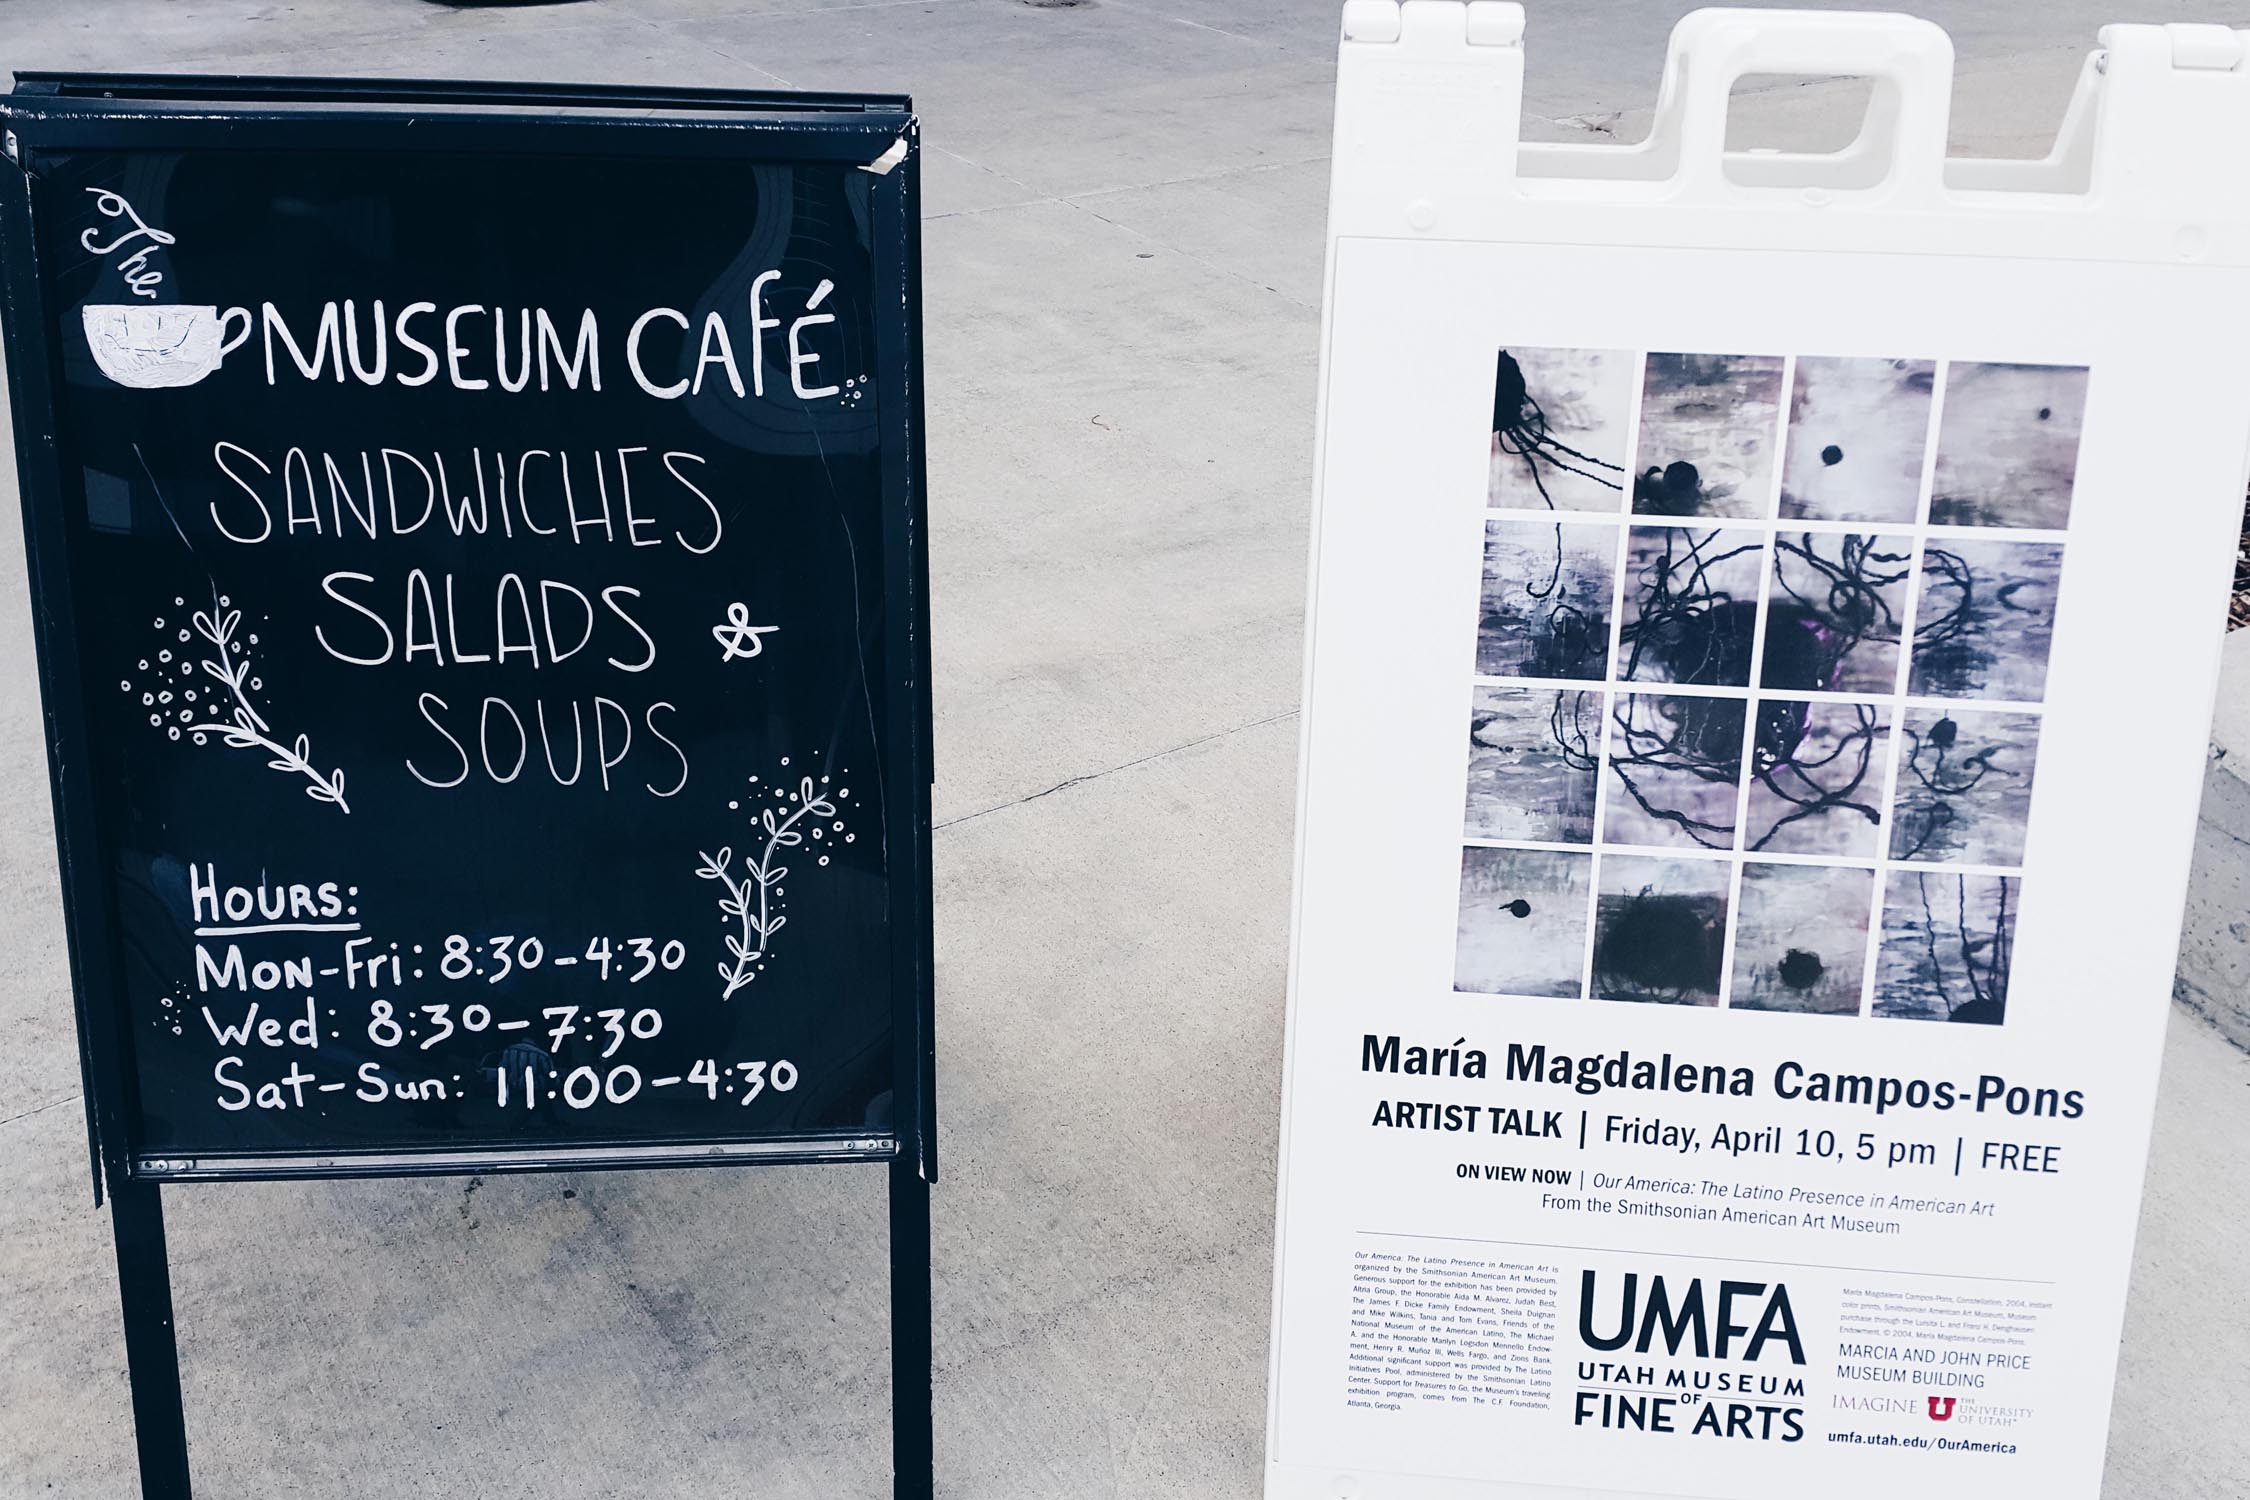 The
MUSEUM CAFÉ
SANDWICHES
SALADS &
SOUPS
HOURS:
MON-Fri: 8:30-4:30
Wed: 8:30-7:30
Sat-Sun: 11:00-4:30
María Magdalena Campos-Pons
ARTIST TALK | Friday, April 10, 5 pm | FREE
ON VIEW NOW | Our America: The Latino Presence in American Art
From the Smithsonian American Art Museum
Our America: The Latino Presence in American Art is
organized by the Smithsonian American Art Museum.
Generous support for the exhibition has been provided by
Altria Group, the Honorable Aida M. Alvarez, Judah Best,
The James F. Dicke Family Endowment, Sheila Duignan
and Mike Wilkins, Tania and Tom Evans, Friends of the
National Museum of the American Latino, The Michael
A. and the Honorable Marilyn Logsdon Mennello Endow-
ment, Henry R. Muñoz III, Wells Fargo, and Zions Bank.
Additional significant support was provided by The Latino
Initiatives Pool, administered by the Smithsonian Latino
Center. Support for Treasures to Go, the Museum's traveling
exhibition program, comes from The C.F. Foundation,
Atlanta, Georgia.
UMFA
UTAH MUSEUM
OF
FINE ARTS
María Magdalena Campos-Pons, Constellation, 2004, instant
color prints, Smithsonian American Art Museum, Museum
purchase through the Luisita L. and Franz H. Denghausen
Endowment, © 2004, María Magdalena Campos-Pons.
MARCIA AND JOHN PRICE
MUSEUM BUILDING
IMAGINE U THE UNIVERSITY OF UTAH
umfa.utah.edu/OurAmerica